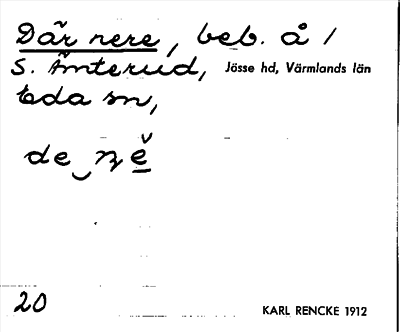 Där nere, beb. å /
S. Åmterud, Jösse hd, Värmlands län
Eda sn,
de‿nĕ
20 KARL RENCKE 1912